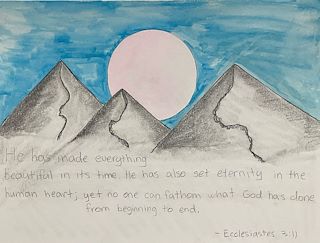 He has made everything
beautiful in its time. He has also set eternity in the
human heart; yet no one can fathom what God has done
from beginning to end.
- Ecclesiastes 3:11